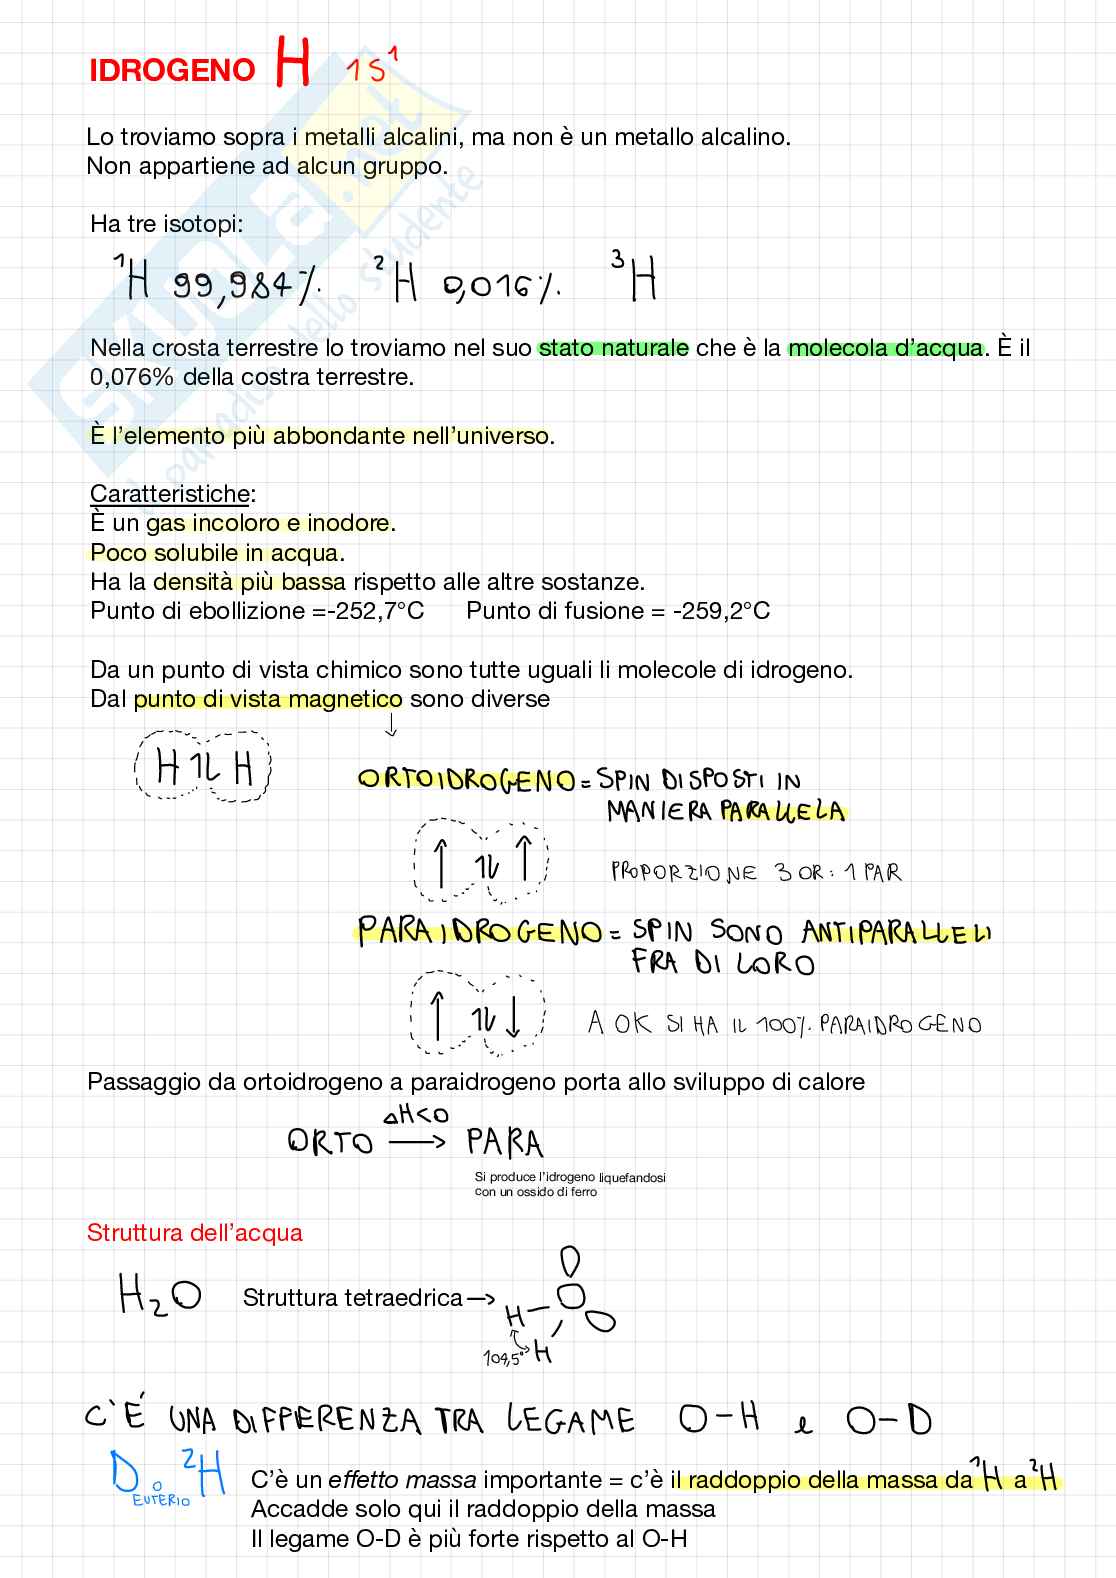 IDROGENO H 1S¹
Lo troviamo sopra i metalli alcalini, ma non è un metallo alcalino.
Non appartiene ad alcun gruppo.
Ha tre isotopi:
¹H 99,984% ²H 0,016% ³H
Nella crosta terrestre lo troviamo nel suo stato naturale che è la molecola d'acqua. È il
0,076% della costra terrestre.
È l'elemento più abbondante nell'universo.
Caratteristiche:
È un gas incoloro e inodore.
Poco solubile in acqua.
Ha la densità più bassa rispetto alle altre sostanze.
Punto di ebollizione =-252,7°C Punto di fusione = -259,2°C
Da un punto di vista chimico sono tutte uguali li molecole di idrogeno.
Dal punto di vista magnetico sono diverse
↓
H ⥮ H
ORTOIDROGENO = SPIN DISPOSTI IN
MANIERA PARALLELA
↑ ⥮ ↑
PROPORZIONE 3 OR : 1 PAR
PARAIDROGENO = SPIN SONO ANTIPARALLELI
FRA DI LORO
↑ ⥮ ↓
A 0K SI HA IL 100% PARAIDROGENO
Passaggio da ortoidrogeno a paraidrogeno porta allo sviluppo di calore
ΔH<0
ORTO → PARA
Si produce l'idrogeno liquefandosi
con un ossido di ferro
Struttura dell'acqua
H₂O Struttura tetraedrica → O
H
H
104,5°
C'É UNA DIFFERENZA TRA LEGAME O-H e O-D
D ²H
EUTERIO
C'è un effetto massa importante = c'è il raddoppio della massa da ¹H a ²H
Accadde solo qui il raddoppio della massa
Il legame O-D è più forte rispetto al O-H
SKUOLA.net
il paradiso dello studente